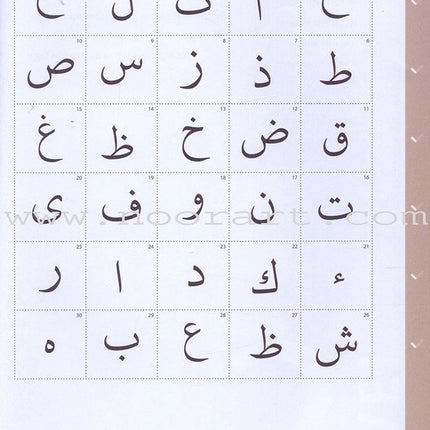 6 7 8 9 10
ط ذ ز س ص
11 12 13 14 15
ق ض خ ظ غ
16 17 18 19 20
ت ن و ف ى
www.noorart.com
21 22 23 24 25
ء ك د ا ر
26 27 28 29 30
ش ظ ع ب ه